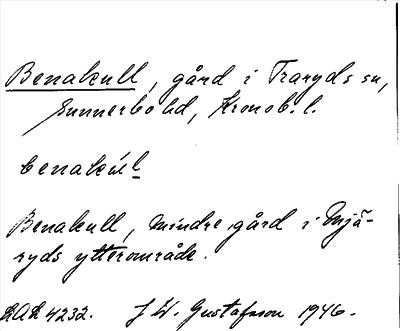 Benakull, gård i Traryds sn,
Sunnerbo hd, Kronob. l.
benakul
Benakull, mindre gård i Mjä-
ryds ytterområde.
4232. J W. Gustafsson 1946.